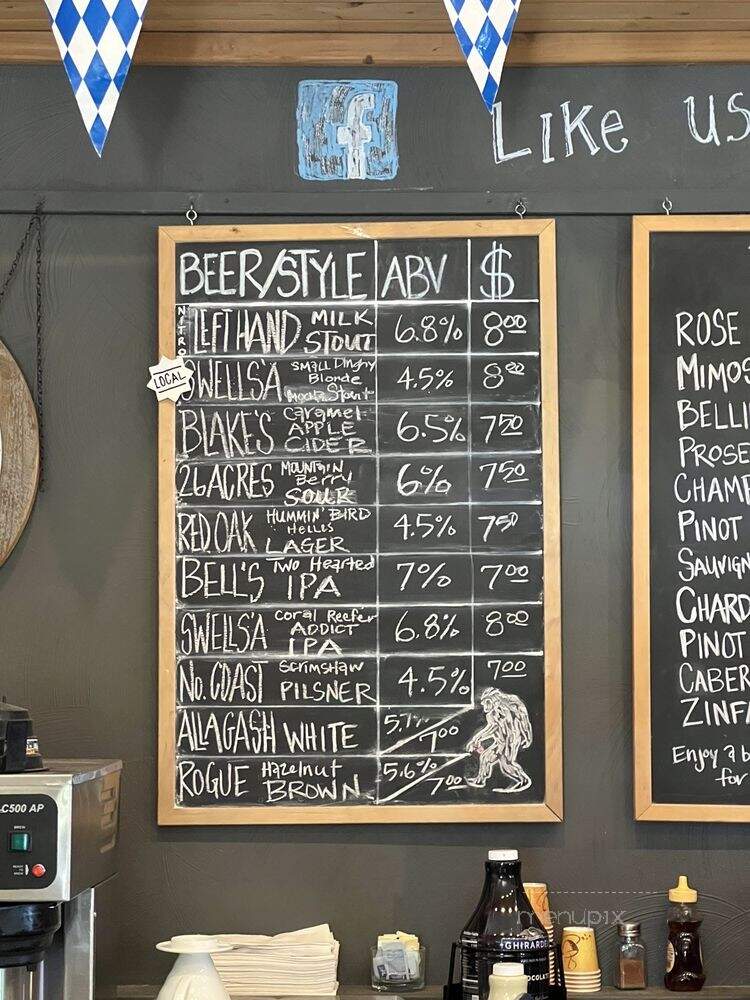 f LIKE US
BEER/STYLE ABV $
NITRO LEFT HAND MILK STOUT 6.8% 8.00
LOCAL
SWELLS'A Small Dinghy Blonde Mocha Stout 4.5% 8.00
BLAKE'S Caramel APPLE CIDER 6.5% 7.50
26 ACRES MOUNTAIN Berry SOUR 6% 7.50
RED OAK HUMMIN' BIRD Helles LAGER 4.5% 7.50
BELL'S Two Hearted IPA 7% 7.00
SWELLS'A Coral Reefer ADDICT IPA 6.8% 8.00
No. COAST Scrimshaw PILSNER 4.5% 7.00
ALLAGASH WHITE 5.7% 7.00
ROGUE Hazelnut BROWN 5.6% 7.00
ROSE
MIMOS
BELLI
PROSE
CHAMP
PINOT
SAUVIGN
CHARD
PINOT
CABER
ZINFA
Enjoy a b
for
-C500 AP
BREW
GHIRARDE
CHOCOLAT
menupix